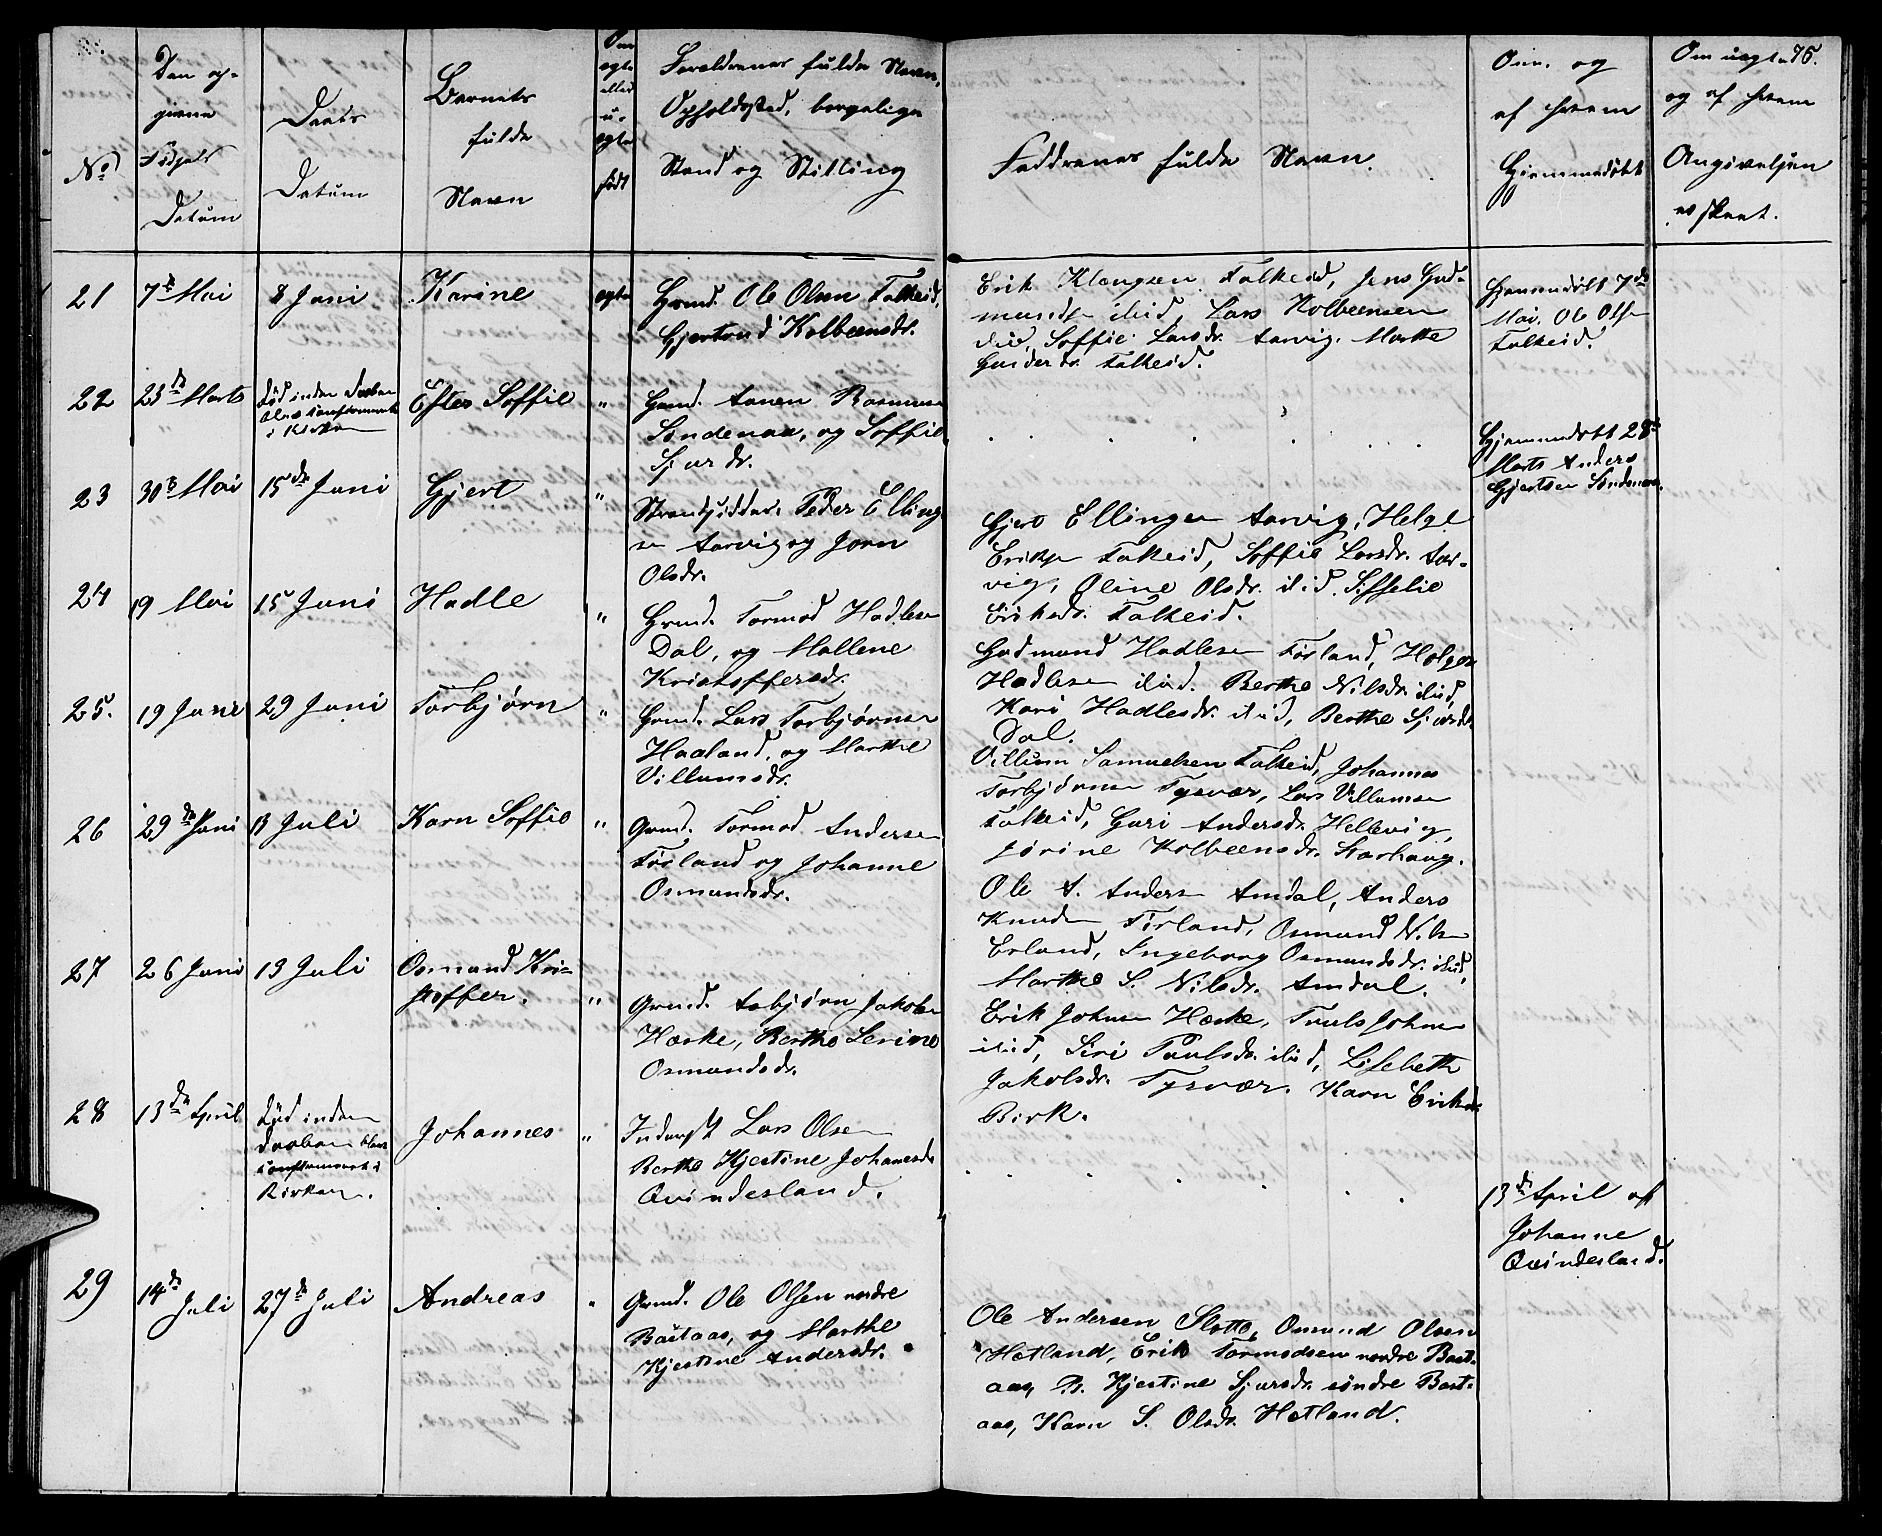 75.
No
Den op-
givne
Fødsels
Datum
Daabs
Datum
Barnets
fulde
Navn
Om
egte
eller
u-
egte
født
Forældrenes fulde Navn,
Opholdssted, borgelige
Stand og Stilling
Faddrenes fulde Navn.
Om og
af hvem
Hjemmedøbt
Om uegte
og af hvem
Angivelsen
er skeet.
21
7de Mai
8 Juni
Karine
egte
Grmd. Ole Olsen Falkeid,
Gjertrud Kolbeensdr.
Erik Klongsen Falkeid, Jens Gud-
mundsen ibid, Lars Kolbeensen
ibid, Soffie Larsdr. Aarvig. Marthe
Falkeid.
Hjemmedøbt 7de
Mai. Ole Olsen
Falkeid.
22
23de Marts
Død inden Daaben
i Kirken
Ester Soffie
"
Grmd. Aanen Rasmusen
Søndenaa, og Soffie
Sjursdr.
Hjemmedøbt 28de
Marts Anders
Gjertsen Søndenaa.
23
30te Mai
15de Juni
Gjert
"
Strandsidder Peder Elling-
sen Aarvig og Joren
Olsdr.
Gjert Ellingsen Aarvig, Helge
Eriksen Falkeid, Soffie Larsdr. Aar-
vig, Oline Olsdr. ibid. Siffelie
Eriksdr. Falkeid.
24
19 Mai
15 Juni
Hadle
"
Grmd. Tormod Hadlesen
Dal, og Mallene
Kristoffersdr.
Gudmund Hadlesen Førland, Holger
Hadlesen ibid. Berthe Nilsdr. ibid,
Kari Hadlesdr. ibid, Berthe Sjursdr.
Dal.
25.
19 Juni
29 Juni
Torbjørn
"
Grmd. Lars Torbjørnsen
Haaland, og Marthe
Villumsdr.
Villum Samuelsen Falkeid, Johannes
Torbjørnsen Tysvær, Lars Villumsen
Falkeid, Guri Andersdr. Hellevig,
Jørine Kolbeensdr. Storhaug.
26
29de Juni
13 Juli
Karn Soffie
"
Grmd. Tormod Andersen
Førland og Johanne
Osmundsdr.
Ole A. Andersen Amdal, Anders
Knudsen Førland, Osmund Nilsen
Erland, Ingeborg Osmundsdr. ibid,
Marthe S. Nilsdr. Amdal.
27
26 Juni
13 Juli
Osmund Kri-
stoffer.
"
Grmd. Asbjørn Jakobsen
Hæske, Berthe Serine
Osmundsdr.
Erik Johnsen Hæske, Truls Johnsen
ibid, Siri Paulsdr. ibid, Lisebeth
Jakobsdr. Tysvær. Karn Eriksdr.
Birk.
28
13de April
Død inden
Daaben blev
i
Kirken.
Johannes
"
Inderst Lars Olsen
Berthe Kjestine Johanesdr.
Qvindesland.
13de April af
Johanne
Qvindesland.
29
14de
Juli
27de Juli
Andreas
"
Grmd. Ole Olsen nordre
Bastaas, og Marthe
Kjestine Andersdr.
Ole Andersen Slotte, Osmund Olsen
Hetland, Erik Tormodsen nordre Bast-
aas, B. Kjestine Sjursdr. søndre Bast-
aas, Karn S. Olsdr. Hetland.